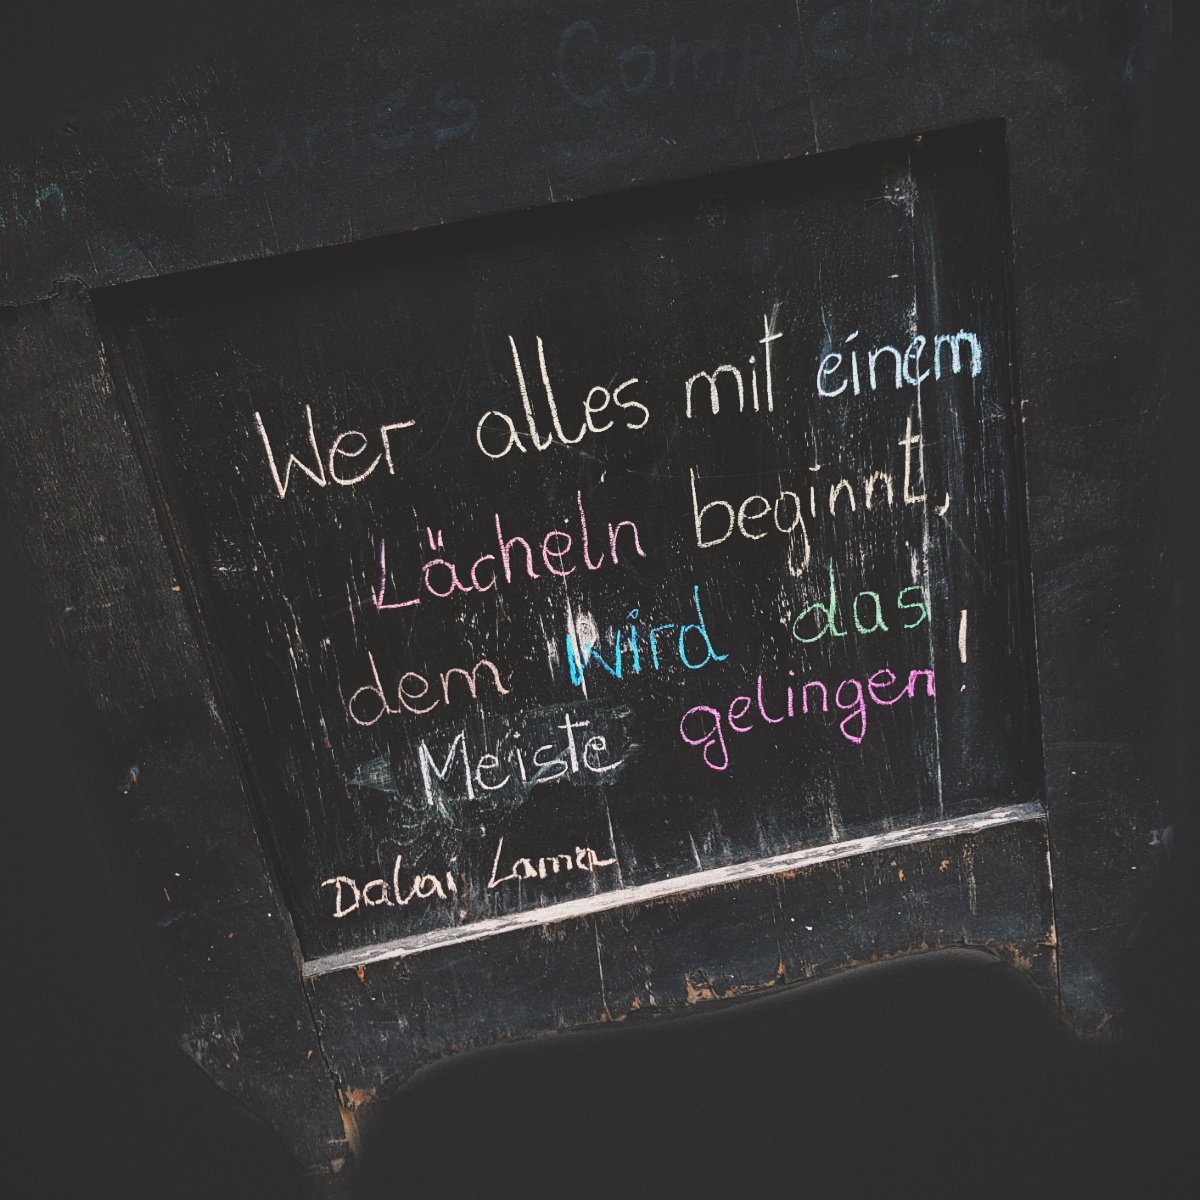 Wer alles mit einem
Lächeln beginnt,
dem wird das
Meiste gelingen!
Dalai Lama